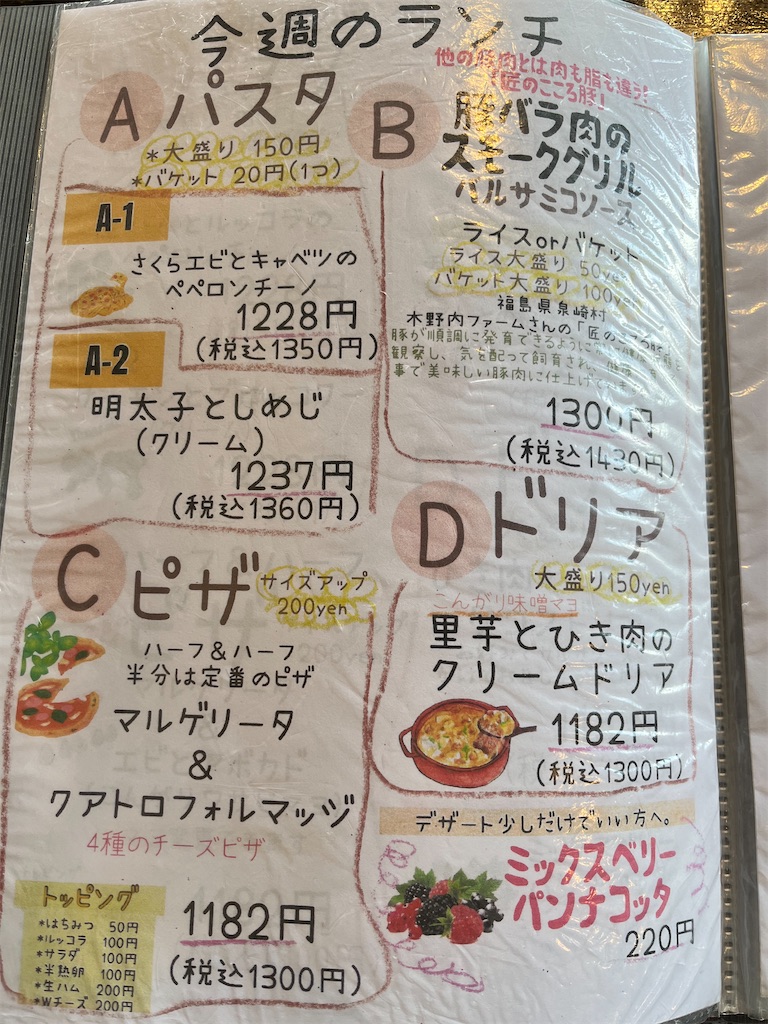 今週のランチ
A パスタ
*大盛り 150円
*バケット 20円(1つ)
A-1
さくらエビとキャベツの
ペペロンチーノ
1228円
(税込1350円)
A-2
明太子としめじ
(クリーム)
1237円
(税込1360円)
他の豚肉とは肉も脂も違う!
「匠のこころ豚」
B 豚バラ肉の
スモークグリル
バルサミコソース
ライスorバケット
ライス大盛り 50yen
バケット大盛り 100yen
福島県泉崎村
木野内ファームさんの「匠のこころ豚」
豚が順調に発育できるように
観察し、気を配って飼育され
事で美味しい豚肉に仕上げて
1300円
(税込1430円)
C ピザ
サイズアップ
200yen
ハーフ&ハーフ
半分は定番のピザ
マルゲリータ
&
クアトロフォルマッジ
4種のチーズピザ
トッピング
*はちみつ 50円
*ルッコラ 100円
*サラダ 100円
*半熟卵 100円
*生ハム 200円
*Wチーズ 200円
1182円
(税込1300円)
D ドリア
大盛り150yen
こんがり味噌マヨ
里芋とひき肉の
クリームドリア
1182円
(税込1300円)
デザート少しだけでいい方へ。
ミックスベリー
パンナコッタ
220円